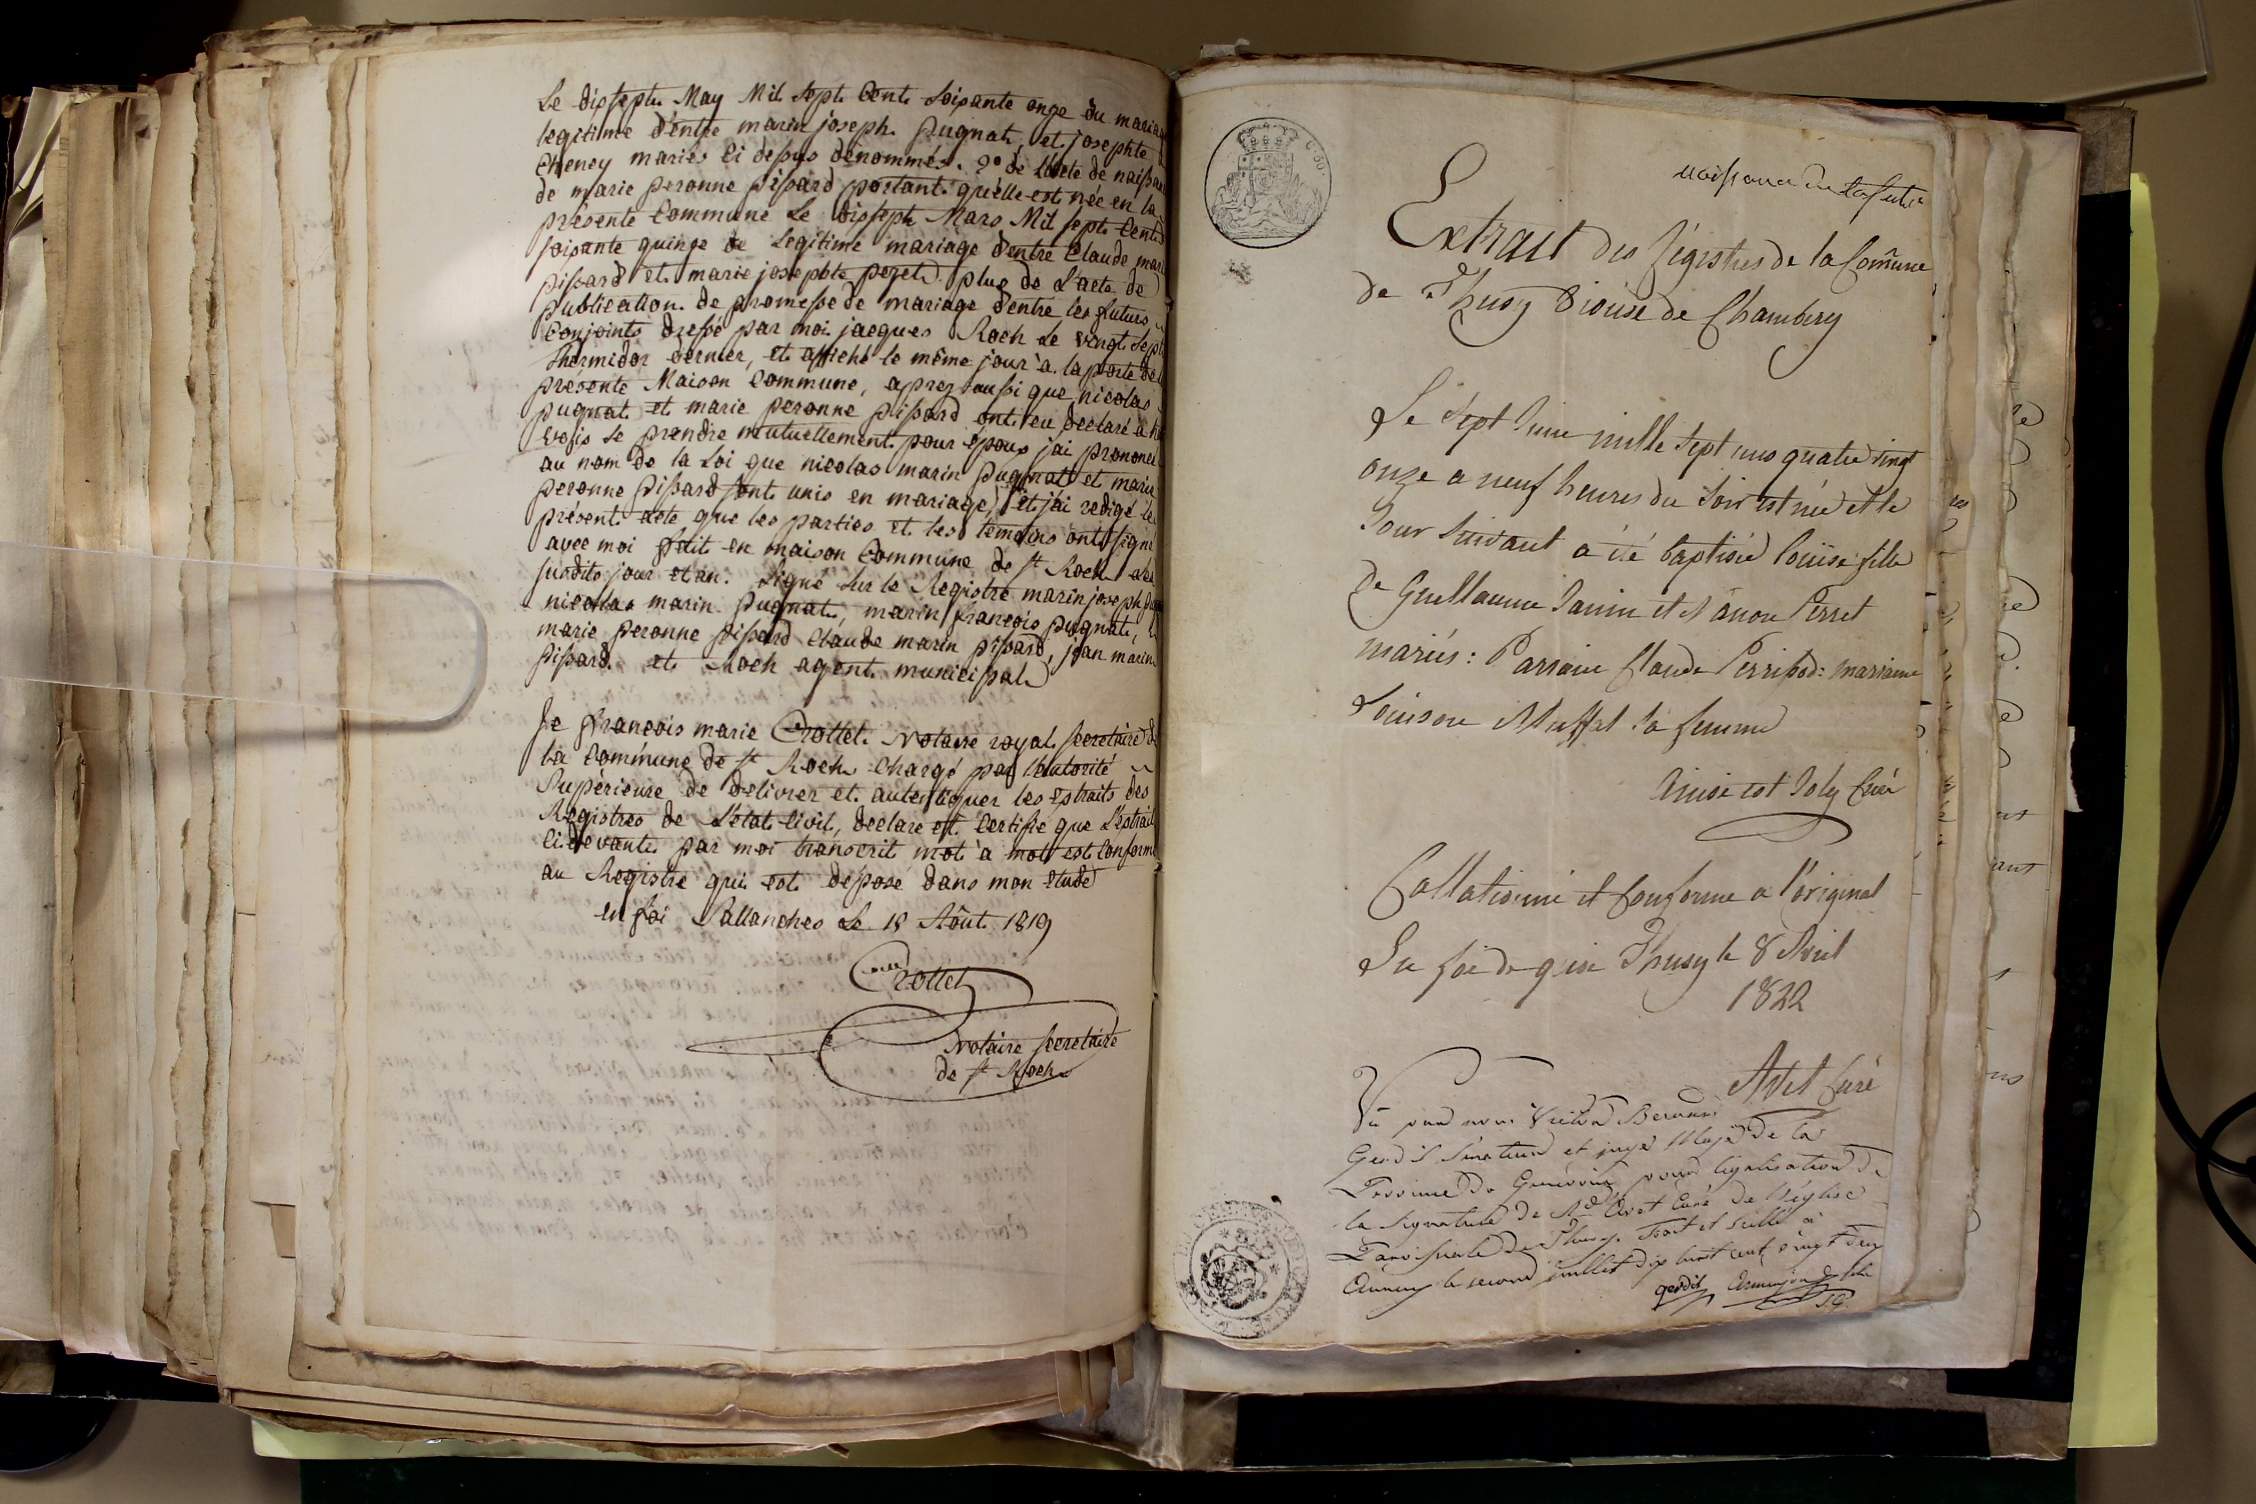 Le dixsepte May Mil Sept Cent Soixante onze du mariage
legitime d'entre marin joseph Pugnat, et josephte
Cheney mariés Ci dessus dénommés. 2° de L'acte de naissance
de marie peronne pissard portant qu'elle est née en la
présente Commune Le dixsepte Mars Mil Sept Cents
soixante quinze de Legitime mariage d'entre Claude marin
pissard et marie josephte peget plus de L'acte de
publication de promesse de mariage d'entre les futurs
Conjoints dressé par moi jacques Roch Le vingt Sept
thermidor dernier, et affiché le même jour à la porte de la
présente Maison Commune, après aussi que nicolas
pugnat et marie peronne pissard ont eu declaré à haute
voix se prendre mutuellement pour époux j'ai prononcé
au nom de la Loi que nicolas marin pugnat et marie
peronne pissard sont unis en mariage, et j'ai redigé le
présent acte que les parties et les temoins ont signé
avec moi fait en maison Commune de St Roch
susdits jour et an. Signé Sur Le Registre marin joseph
nicolas marin pugnat, marin françois pugnat,
marie peronne pissard Claude marin pissard, jean marin
pissard et Roch agent municipal
Je françois marie Crottet Notaire royal secretaire de
la Commune de St Roch Chargé par l'autorité
Supérieure de delivrer et autentiquer les extraits des
Registres de L'état Civil, declare et Certifie que L'extrait
Ci devant par moi transcrit mot à mot est Conforme
au Registre qui est déposé dans mon étude
en foi Sallanches Le 18 Aôut 1819
Crottet
Notaire secretaire
de St Roch
C. 30.
naissance de la future
Extrait des Régistres de la Commune
de Thusy Diouse de Chambery
Le Sept Juin mille Sept cens quatre vingt
onze a neuf heures du Soir est née et le
Jour Suivant a été baptisée Louise fille
de Guillaume Janin et Perret
mariés: Parrain Claude Perrissod: marraine
Louison sa femme
Ainsi est Joly Curé
Collationné et Conforme a l'original
En foi de quoi Thusy le 8 Avril
1822
Avet Curé
Vû par nous
Gerdil Sénateur et juge Maje de la
Province de Genevois pour légalisation de
la signature de Rd Avet Curé de l'église
Paroissiale de Thusy. Fait et scellé à
Annecy le second juillet dix huit cent vingt deux
gerdil